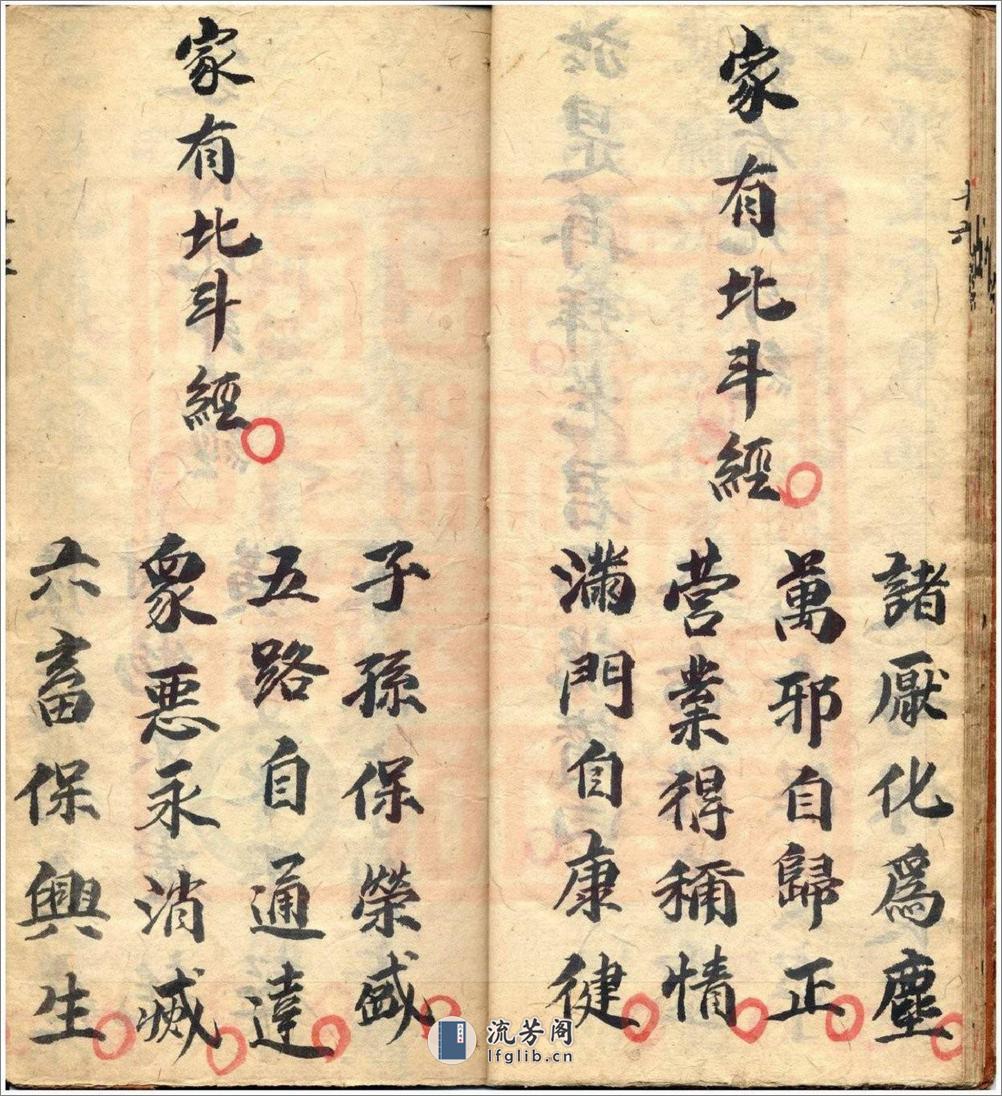 十六
家有北斗經
諸厭化爲塵
萬邪自歸正
營業得稱情
滿門自康健
家有北斗經
子孫保榮盛
五路自通達
衆悪永消滅
六畜保興生
流芳阁
lfglib.cn